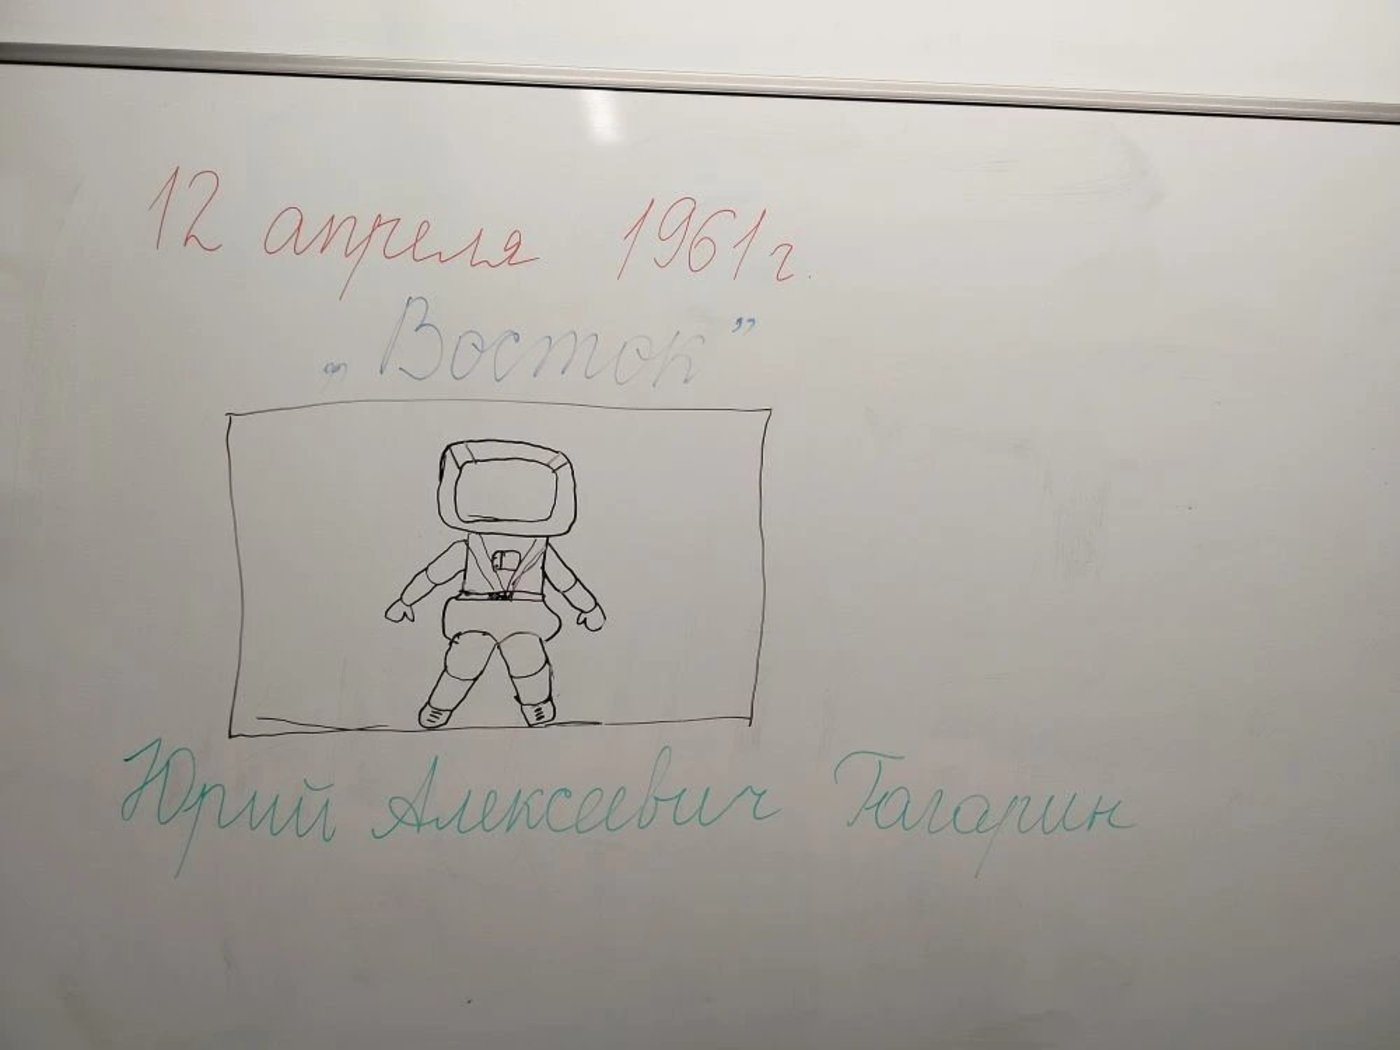 12 апреля 1961 г.
„Восток”
Юрий Алексеевич Гагарин